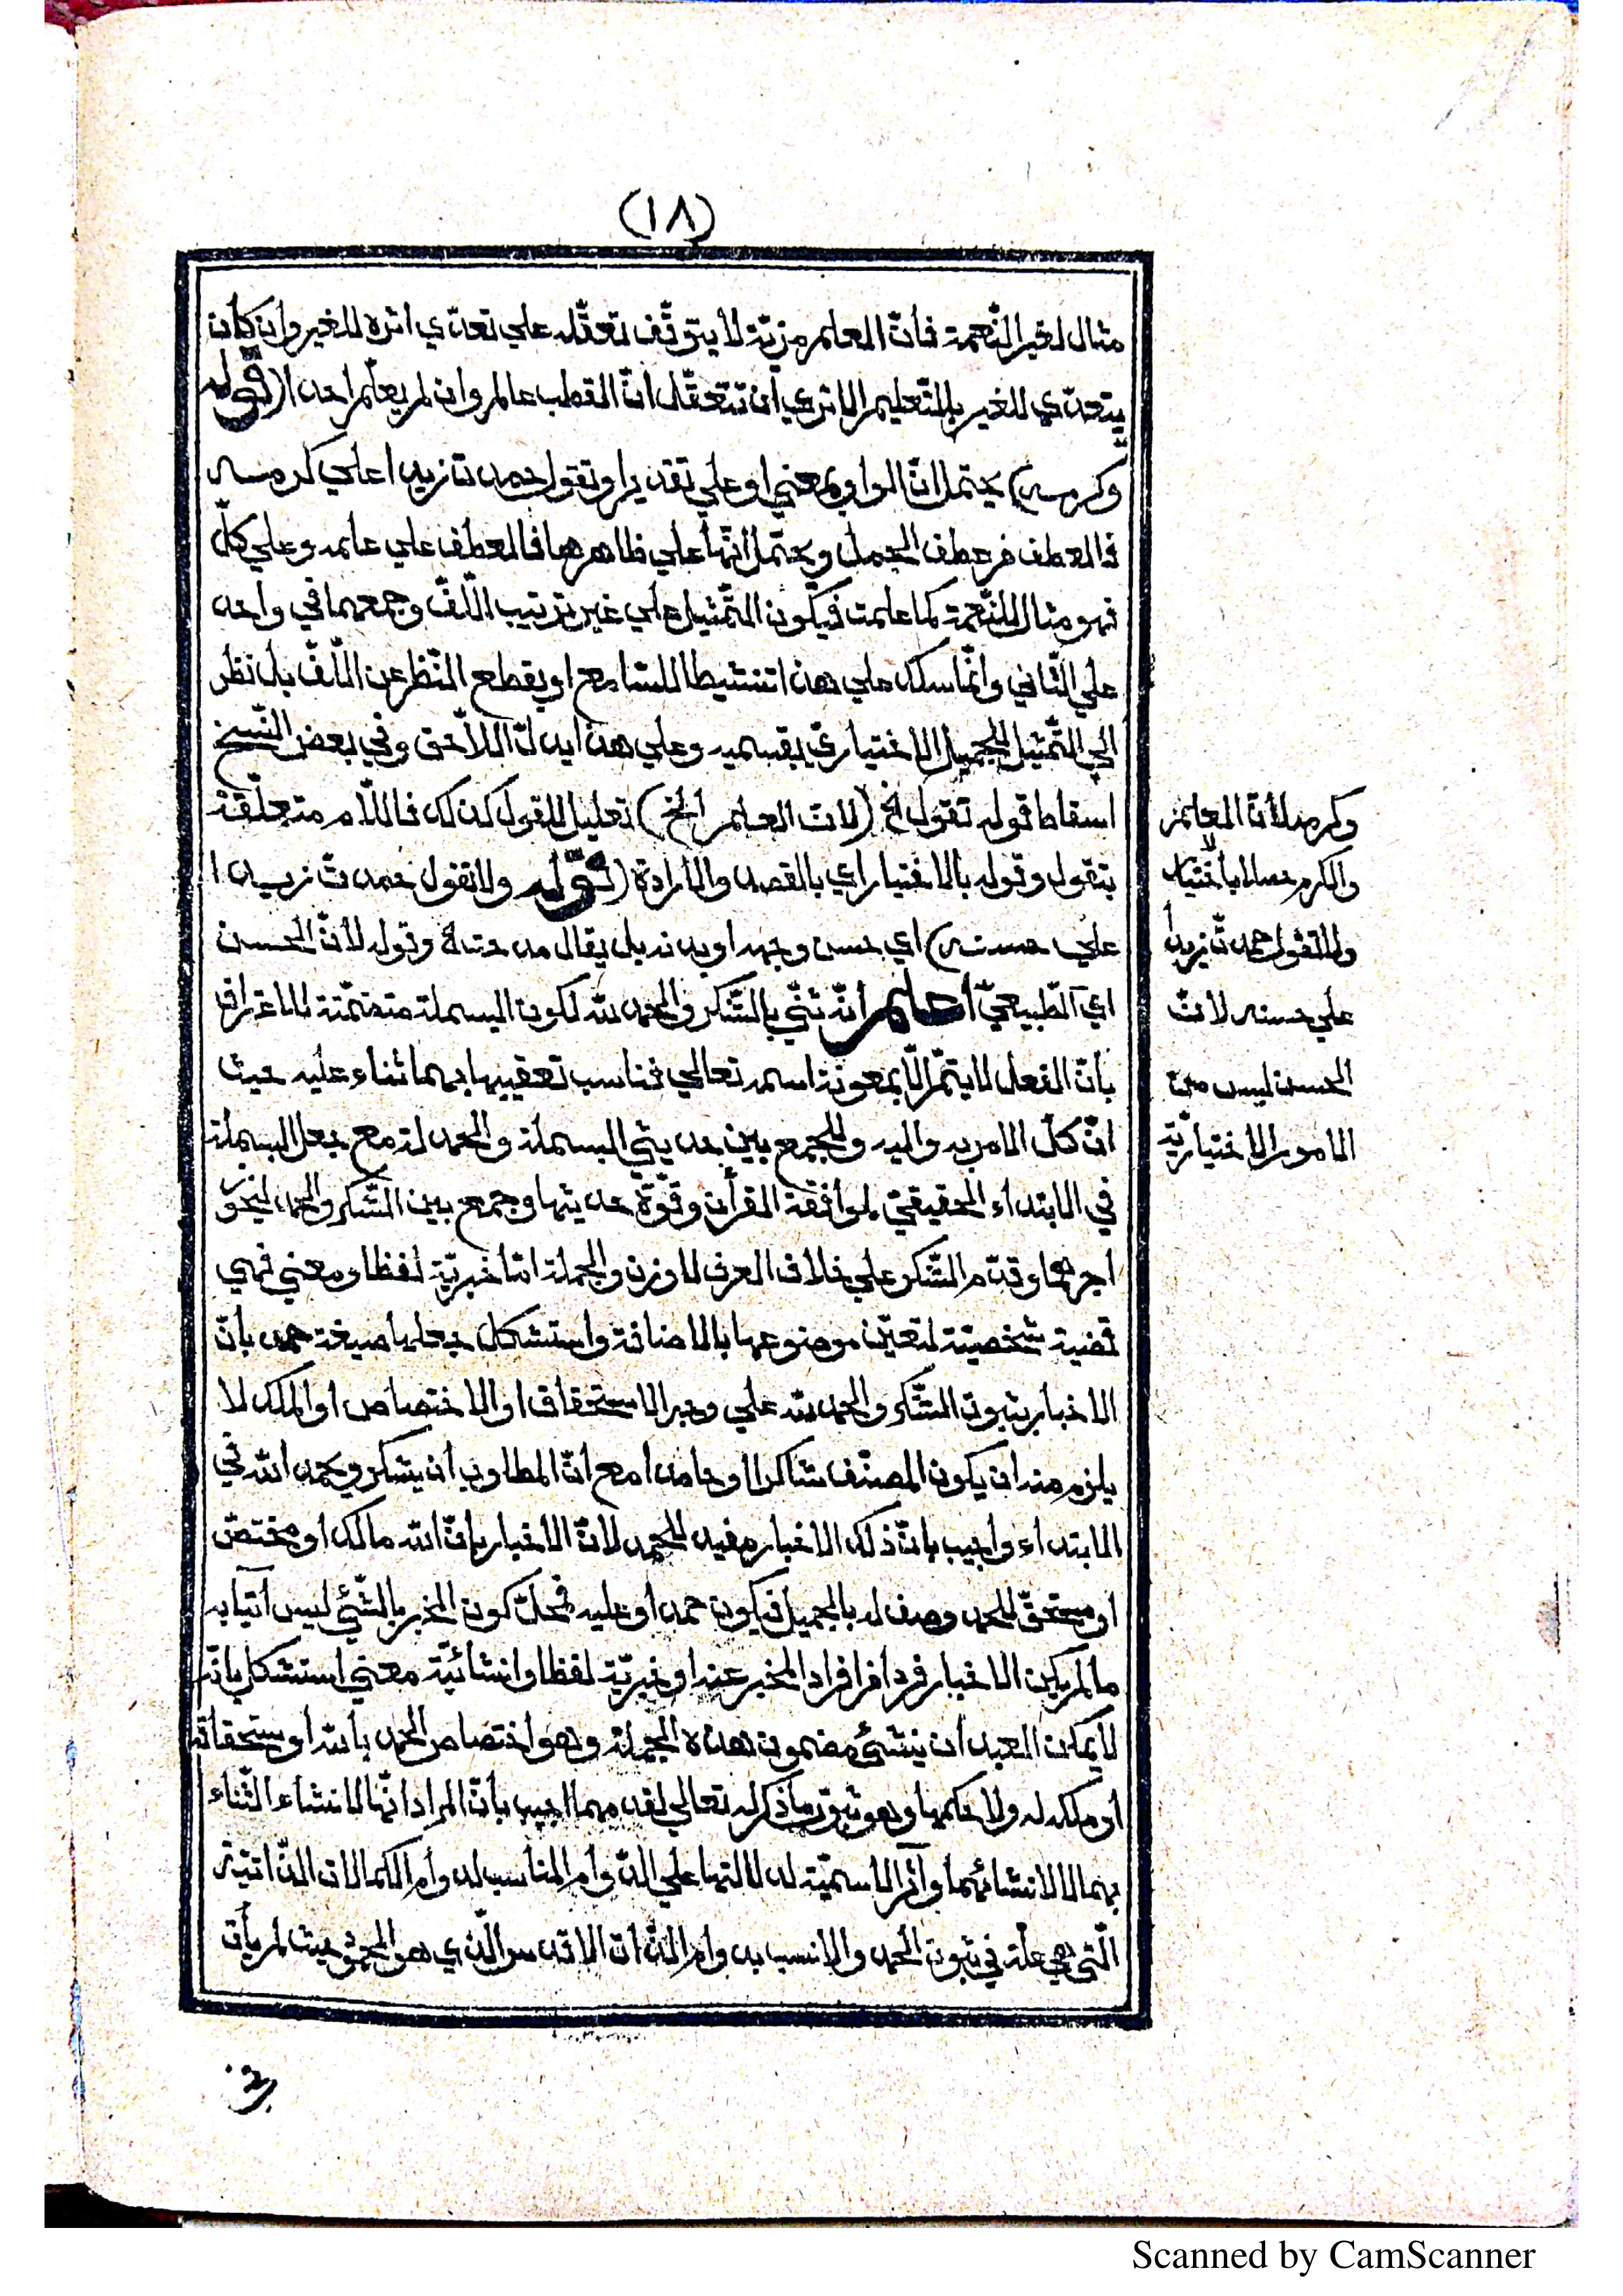 (١٨)
مثال لغير النّعمة فانّ العلم مزيّة لا يتوقّف تعقّله علي تعدّي اثره للغير وان كان
يتعدّي للغير بالتّعليم الا تري أن تتعقّل انّ القطب عالم وان لم يعلّم احدا (قوله
وكرمه) يحتمل انّ الواو بمعني او علي تقدير او تقول حمدت زيدا علي كرمه
فالعطف من عطف الجمل ويحتمل انّها علي ظاهرها فالعطف علي علمه وعلي كلّ
فهو مثال للنّعمة كما علمت فيكون التّمثيل علي غير ترتيب اللّفّ وجمعهما في واحد
علي الثّاني وانّما سلك علي هذا تنشيطا للسّامع او يقطع النّظر عن اللّفّ بل نظر
الي التّمثيل للجميل الاختياريّ بقسميه وعلي هذا يدلّ اللاّحق وفي بعض النّسخ
اسقاط قوله تقول الخ (لان العلم الخ) تعليل للقول كذلك فاللاّم متعلّقة
بتقول وقوله بالاختيار اي بالقصد والارادة (قوله ولا تقول حمدت زيدا
علي حسنه) اي حسن وجهه او يد نه بل يقال مدحته وقوله لأنّ الحسن
اي الطّبيعيّ اعلم انّه ثنّي بالشّكر والحمد لله لكون البسملة متضمّنة للاعتراف
بأنّ الفعل لا يتمّ الاّ بمعونة اسمه تعالي فناسب تعقيبها بهما ثناء عليه حيث
انّ كلّ الامر به واليه وللجمع بين حديثي البسملة والحمدلة مع جعل البسملة
في الابتداء الحقيقيّ لموافقة القرأن وقوّة حديثها وجمع بين الشّكر والحمد ليحوز
اجرهما وقدّم الشّكر علي خلاف العرف للوزن والجملة امّا خبريّة لفظا ومعني فهي
قضية شخصيّة لتعيّن موضوعها بالاضافة واستشكل جعلها صيغة حمد بأنّ
الاخبار بثبوت الشّكر والحمد لله علي وجه الاستحقاق او الاختصاص او الملك لا
يلزم منه ان يكون المصنّف شاكرا او حامدا مع أنّ المطلوب أن يشكر ويحمد الله في
الابتداء وأجيب بانّ ذلك الاخبار مفيد للحمد لانّ الاخبار بانّ الله مالك او مختصّ
او مستحقّ للحمد وصف له بالجميل فيكون حمدا وعليه فمحلّ كون المخبر بالشّئ ليس آتيا به
ما لم يكن الاخبار فردا من افراد المخبر عنه او خبريّة لفظا وانشائيّة معني استشكل بانّه
لا يمكن العبد ان ينشئ مضمون هذه الجملة وهو اختصاص الحمد بالله او استحقاقه
او ملكه له ولا حكمها وهو ثبوت ما ذكر له تعالي لقدمهما اجيب بأنّ المراد انّها لانشاء الثّناء
بهما لا لانشائهما وآثر الاسميّة له لدلالتها علي الدّوام المناسب له وام الكمالات الذّاتيّة
الّتي هي علّة في ثبوت الحمد والانسب به وام الذّات الاقدس الّذي هو المحمود حيث لم يأت
وكرمه لأنّ العلم
والكرم حصلا باختيار
ولا تقول حمدتّ زيدا
علي حسنه لانّ
الحسن ليس من
الامور الاختياريّة
Scanned by CamScanner